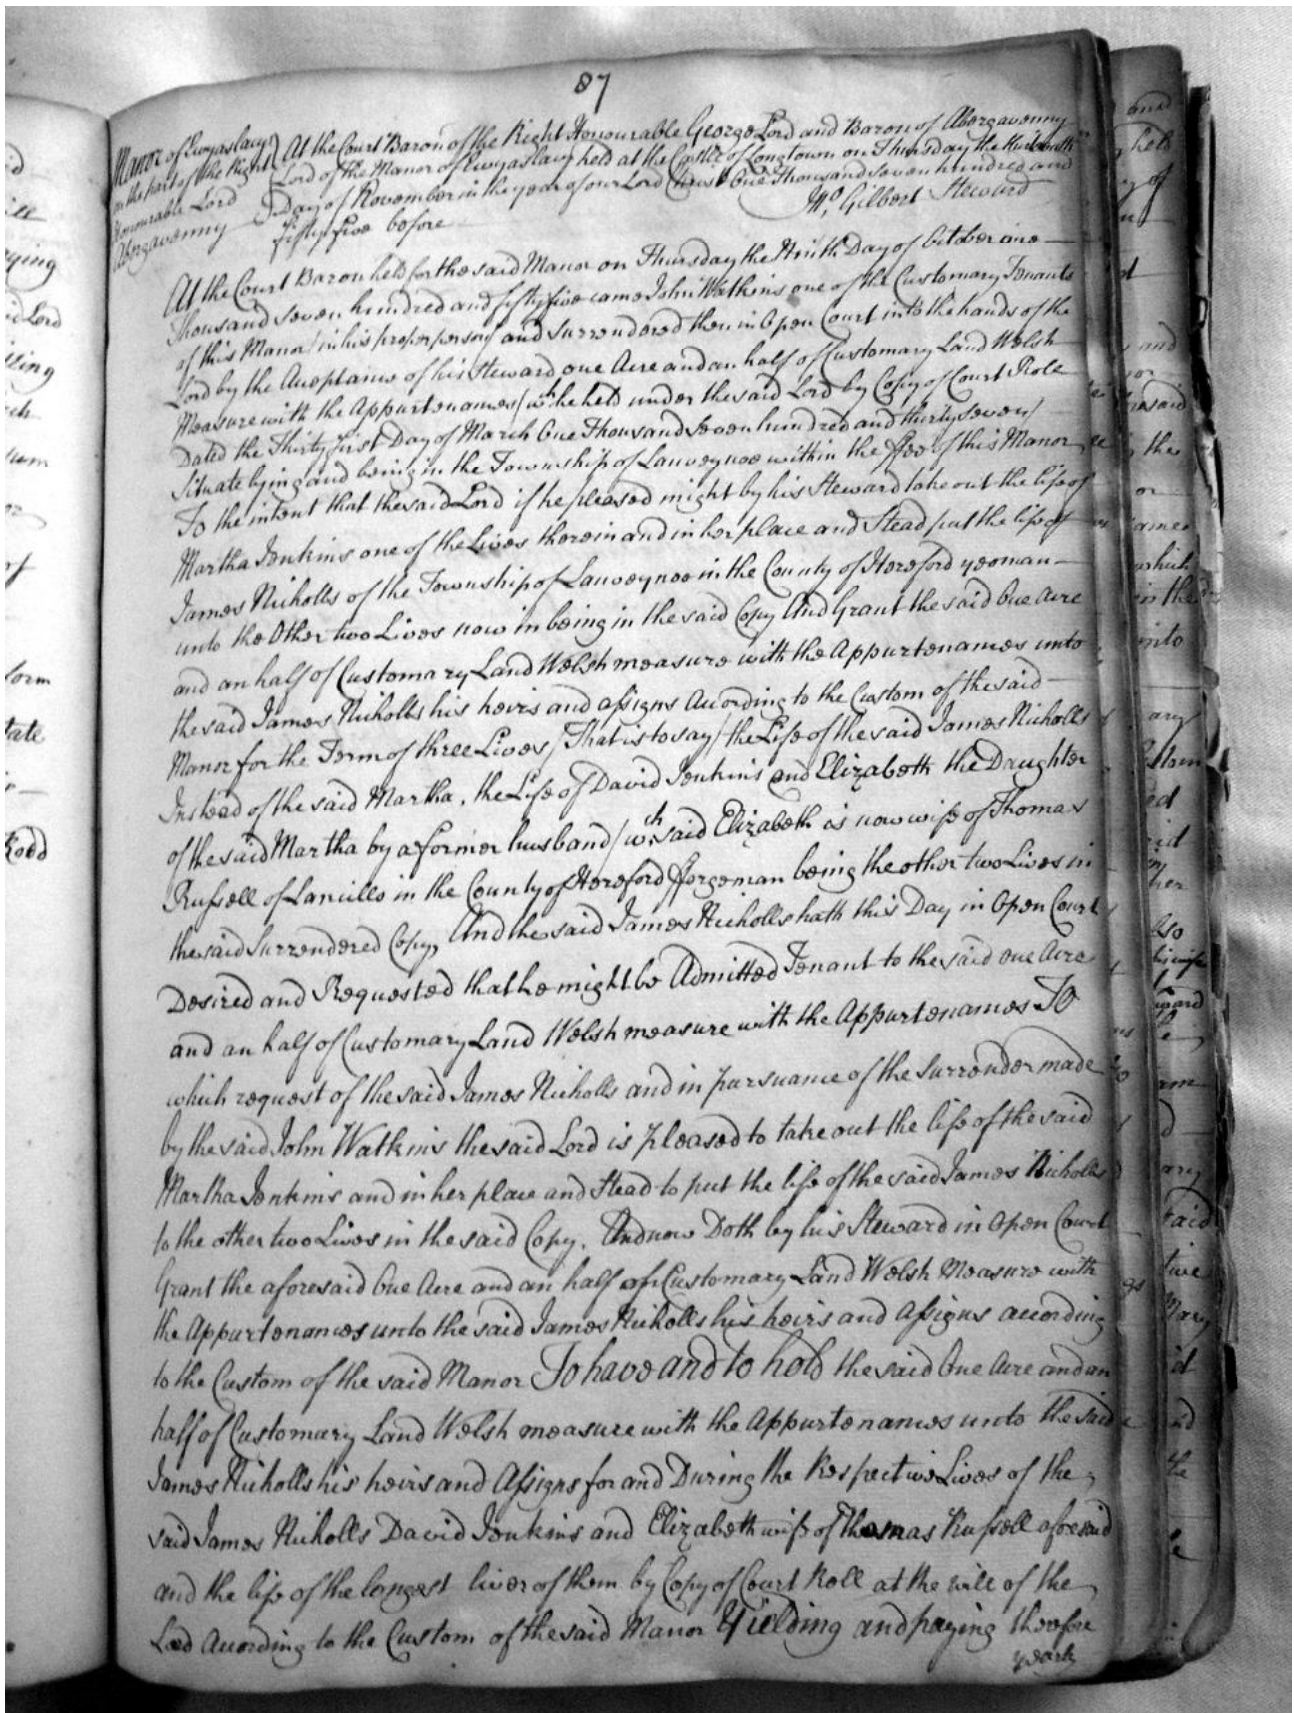 87
Manor of Ewyaslacy
on the part of the Right
Honourable Lord
Abergavenny
At the Court Baron of the Right Honourable George Lord and Baron of Abergavenny
Lord of the Manor of Ewyaslacy held at the Castle of Longtown on Thursday the
Day of November in the year of our Lord Christ One Thousand seven hundred and
fifty five before
Jno. Gilbert Steward
At the Court Baron held for the said Manor on Thursday the Ninth Day of October one
Thousand seven hundred and fifty five came John Watkins one of the Customary Tenants
of this Manor / in his proper person / and surrendered then in Open Court into the hands of the
Lord by the Acceptance of his Steward one Acre and an half of Customary Land Welsh
Measure with the Appurtenances / wch. he held under the said Lord by Copy of Court Role
Dated the Thirty first Day of March One Thousand Seven hundred and thirty seven /
Situate lying and being in the Township of Lanveynoe within the ffee of this Manor
To the intent that the said Lord if he pleased might by his Steward take out the life of
Martha Jenkins one of the Lives therein and in her place and Stead put the life of
James Nicholls of the Township of Lanveynoe in the County of Hereford yeoman
unto the Other two Lives now in being in the said Copy And Grant the said One Acre
and an half of Customary Land Welsh measure with the Appurtenances unto
the said James Nicholls his heirs and assigns According to the Custom of the said
Manor for the Term of three Lives / That is to say / the Life of the said James Nicholls
Instead of the said Martha, the Life of David Jenkins and Elizabeth the Daughter
of the said Martha by a former husband / wch. said Elizabeth is now wife of Thomas
Russell of Lancillo in the County of Hereford fforgeman being the other two Lives in
the said Surrendered Copy, And the said James Nicholls hath this Day in Open Court
Desired and Requested that he might be Admitted Tenant to the said one Acre
and an half of Customary Land Welsh measure with the Appurtenances To
which request of the said James Nicholls and in pursuance of the Surrender made
by the said John Watkins the said Lord is pleased to take out the life of the said
Martha Jenkins and in her place and Stead to put the life of the said James Nicholls
to the other two Lives in the said Copy. And now Doth by his Steward in Open Court
Grant the aforesaid One Acre and an half of Customary Land Welsh Measure with
the Appurtenances unto the said James Nicholls his heirs and Assigns according
to the Custom of the said Manor To have and to hold the said One Acre and an
half of Customary Land Welsh measure with the Appurtenances unto the said
James Nicholls his heirs and Assigns for and During the Respective Lives of the
said James Nicholls David Jenkins and Elizabeth wife of Thomas Russell aforesaid
and the life of the longest liver of them by Copy of Court Roll at the will of the
Lord According to the Custom of the said Manor Yielding and paying therefore
yearly